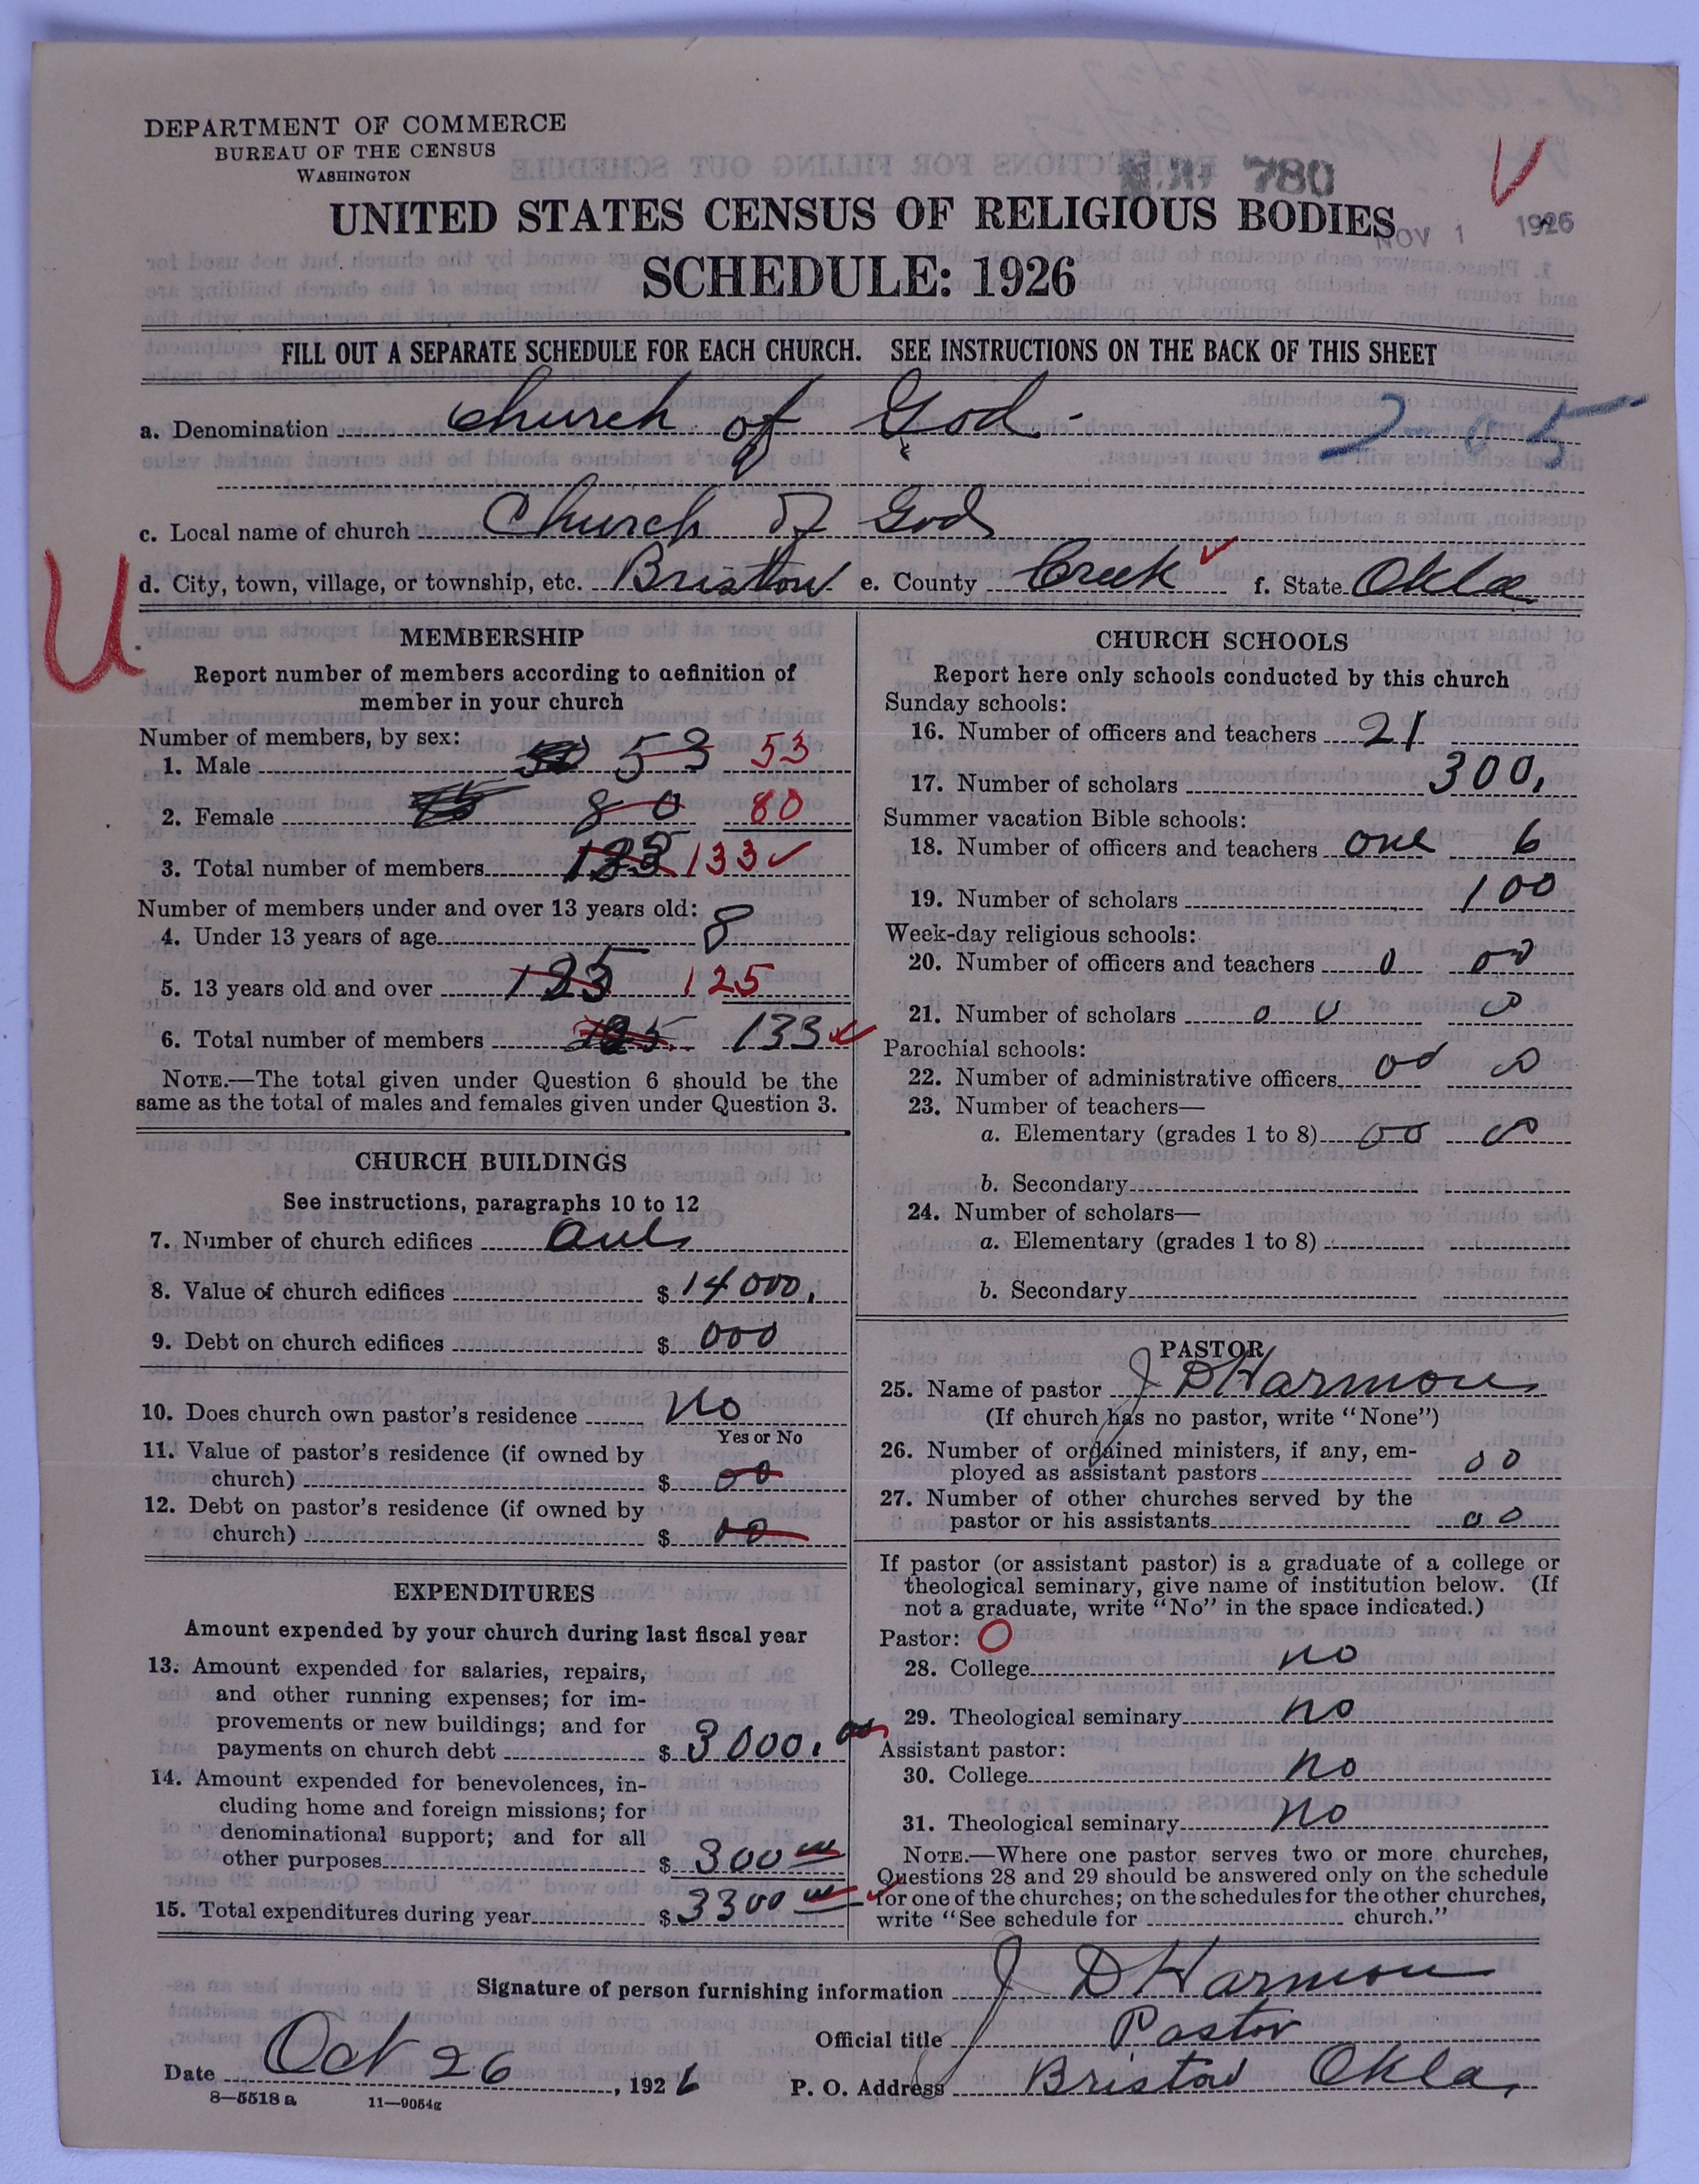 DEPARTMENT OF COMMERCE
BUREAU OF THE CENSUS
WASHINGTON
780
UNITED STATES CENSUS OF RELIGIOUS BODIES
NOV 1 1926
SCHEDULE: 1926
FILL OUT A SEPARATE SCHEDULE FOR EACH CHURCH. SEE INSTRUCTIONS ON THE BACK OF THIS SHEET
a. Denomination Church of God 2-05
c. Local name of church Church of God
d. City, town, village, or township, etc. Bristow e. County Creek f. State Okla
U
MEMBERSHIP
Report number of members according to definition of
member in your church
Number of members, by sex:
1. Male 53 53
2. Female 80 80
3. Total number of members 133 133
Number of members under and over 13 years old:
4. Under 13 years of age 8
5. 13 years old and over 125 125
6. Total number of members 133
NOTE.—The total given under Question 6 should be the
same as the total of males and females given under Question 3.
CHURCH BUILDINGS
See instructions, paragraphs 10 to 12
7. Number of church edifices one
8. Value of church edifices $ 14000.
9. Debt on church edifices $ 000
10. Does church own pastor's residence No
Yes or No
11. Value of pastor's residence (if owned by
church) $ 00
12. Debt on pastor's residence (if owned by
church) $ 00
EXPENDITURES
Amount expended by your church during last fiscal year
13. Amount expended for salaries, repairs,
and other running expenses; for im-
provements or new buildings; and for
payments on church debt $ 3000.00
14. Amount expended for benevolences, in-
cluding home and foreign missions; for
denominational support; and for all
other purposes $ 300 00
15. Total expenditures during year $ 3300 00
CHURCH SCHOOLS
Report here only schools conducted by this church
Sunday schools:
16. Number of officers and teachers 21
17. Number of scholars 300.
Summer vacation Bible schools:
18. Number of officers and teachers one 6
19. Number of scholars 100
Week-day religious schools:
20. Number of officers and teachers 0 00
21. Number of scholars 0 0 0
Parochial schools:
22. Number of administrative officers 00 0
23. Number of teachers—
a. Elementary (grades 1 to 8) 00 0
b. Secondary
24. Number of scholars—
a. Elementary (grades 1 to 8)
b. Secondary
PASTOR
25. Name of pastor J D Harmon
(If church has no pastor, write "None")
26. Number of ordained ministers, if any, em-
ployed as assistant pastors 00
27. Number of other churches served by the
pastor or his assistants 00
If pastor (or assistant pastor) is a graduate of a college or
theological seminary, give name of institution below. (If
not a graduate, write "No" in the space indicated.)
Pastor: O
28. College no
29. Theological seminary no
Assistant pastor:
30. College no
31. Theological seminary no
NOTE.—Where one pastor serves two or more churches,
Questions 28 and 29 should be answered only on the schedule
for one of the churches; on the schedules for the other churches,
write "See schedule for church."
Signature of person furnishing information J D Harmon
Official title Pastor
Date Oct 26, 1926 P. O. Address Bristow Okla,
8—5518a 11—9054g